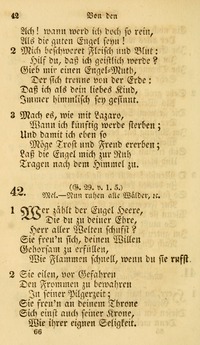 42 Von den
Ach! wann werd ich doch so rein,
Als die guten Engel seyn!
2 Mich beschweret Fleisch und Blut:
Hilf du, daß ich geistlich werde?
Gieb mir einen Engel-Muth,
Der sich trenne von der Erde:
Daß ich als dein liebes Kind,
Immer himmlisch sey gesinnt.
3 Mach es, wie mit Lazaro,
Wann ich künftig werde sterben;
Und damit ich eben so
Möge Trost und Freud ererben;
Laß die Engel mich zur Ruh
Tragen nach dem Himmel zu.
42. (G. 29. v. 1. 5.)
Mel.—Nun ruhen alle Wälder, ꝛc.
1 Wer zählt der Engel Heere,
Die du zu deiner Ehre,
Herr aller Welten schufst?
Sie freu'n sich, deinen Willen
Gehorsam zu erfüllen,
Wie Flammen schnell, wenn du sie rufst.
2 Sie eilen, vor Gefahren
Den Frommen zu bewahren
In seiner Pilgerzeit;
Sie freu'n an deinem Throne
Sich einst auch seiner Krone,
Wie ihrer eignen Seligkeit.
66